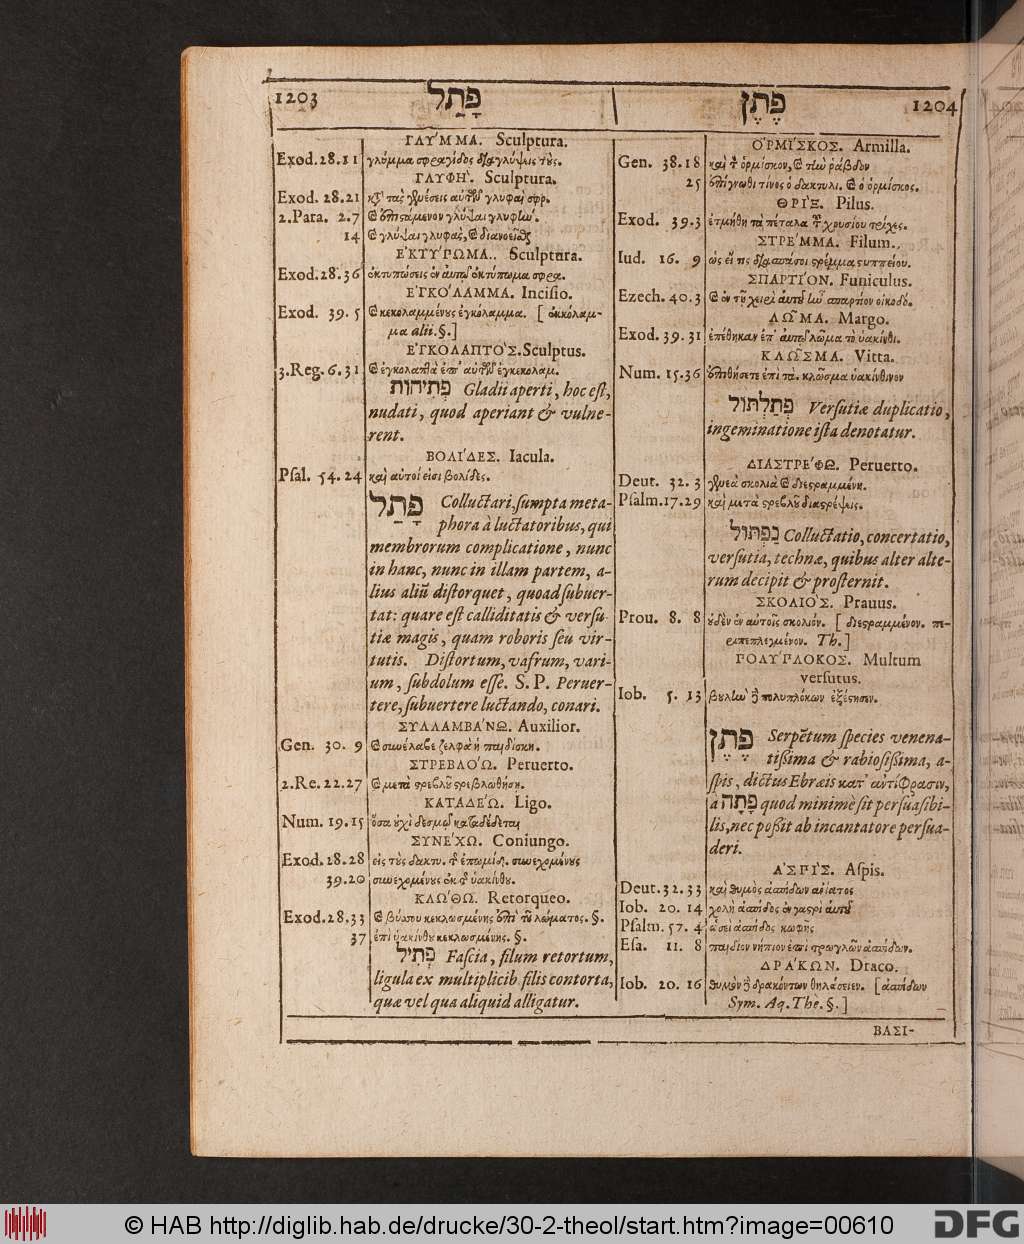 1203 פָּתַל
ΓΛΥ´ΜΜΑ. Sculptura.
Exod. 28. 11 γλύμμα σφραγίδος διαγλύψεις τοὺς.
ΓΛΥΦΗ`. Sculptura.
Exod. 28. 21 γλυφαὶ σφρ.
2. Para. 2. 7 γλύψαι γλυφὼ.
14 γλύψαι γλυφὰς,
ΕΚΤΥ´ΠΩΜΑ. Sculptura.
Exod. 28. 36 ἐκτυπώσεις ἐν αὐτῷ ἐκτύπωμα σφρα.
ΕΓΚΟ´ΛΑΜΜΑ. Incisio.
Exod. 39. 5 κεκολαμμένους ἐγκόλαμμα. [ ἐκκόλαμ-
μα alii. §. ]
ΕΓΚΟΛΑΠΤΟ`Σ. Sculptus.
3. Reg. 6. 31 ἐγκολαπτὰ ἐπ' αὐτῶν ἐγκεκολαμ.
פְּתִיחוֹת Gladii aperti, hoc est,
nudati, quod aperiant & vulne-
rent.
ΒΟΛΙ´ΔΕΣ. Iacula.
Psal. 54. 24 καὶ αὐτοί εἰσι βολίδες.
פָּתַל Colluctari, sumpta meta-
phora à luctatoribus, qui
membrorum complicatione, nunc
in hanc, nunc in illam partem, a-
lius aliũ distorquet, quoad subuer-
tat: quare est calliditatis & versu-
tiæ magis, quam roboris seu vir-
tutis. Distortum, vafrum, vari-
um, subdolum esse. S. P. Peruer-
tere, subuertere luctando, conari.
ΣΥΛΛΑΜΒΑ´ΝΩ. Auxilior.
Gen. 30. 9 συνέλαβε ζελφὰ ἡ παιδίσκη.
ΣΤΡΕΒΛΟ´Ω. Peruerto.
2. Re. 22. 27 μετὰ στρεβλοῦ στρεβλωθήσῃ.
ΚΑΤΑΔΕ´Ω. Ligo.
Num. 19. 15 ὅσα οὐχὶ δεσμῷ καταδέδεται
ΣΥΝΕ´ΧΩ. Coniungo.
Exod. 28. 28 εἰς τοὺς δακτυ. συνεχομένους
39. 20 συνεχομένους ἐκ τ̃ ὑακίνθου.
ΚΛΩ´ΘΩ. Retorqueo.
Exod. 28. 33 βύσσου κεκλωσμένης ἐπὶ τοῦ λώματος. §.
37 ἐπὶ ὑακίνθου κεκλωσμένης. §.
פְּתִיל Fascia, filum retortum,
ligula ex multiplicib filis contorta,
quæ vel qua aliquid alligatur.
פֶּתֶן 1204
ΟΡΜΙ´ΣΚΟΣ. Armilla.
Gen. 38. 18 ὁρμίσκον, ῥάβδον
25 ἐπίγνωθι τίνος ὁ δακτυλι. ὁ ὁρμίσκος.
ΘΡΙ`Ξ. Pilus.
Exod. 39. 3 ἐτμήθη τὰ πέταλα τ̃ χρυσίου τρίχες.
ΣΤΡΕ´ΜΜΑ. Filum.
Iud. 16. 9 ὡς εἴ τις διασπάσοι στρέμμα στυππείου.
ΣΠΑΡΤΙ´ΟΝ. Funiculus.
Ezech. 40. 3 ἐν τῇ χειρὶ αὐτοῦ ἦν σπαρτίον οἰκοδό.
ΛΩ˜ΜΑ. Margo.
Exod. 39. 31 ἐπέθηκαν ἐπ' αὐτῷ λῶμα τὸ ὑακίνθι.
ΚΛΩ˜ΣΜΑ. Vitta.
Num. 15. 36 ἐπιθήσετε ἐπὶ τὰ. κλῶσμα ὑακίνθινον
פְּתַלְתּוֹל Versutiæ duplicatio,
ingeminatione ista denotatur.
ΔΙΑΣΤΡΕ´ΦΩ. Peruerto.
Deut. 32. 3 γενεὰ σκολιὰ διεστραμμένη.
Psalm. 17. 29 καὶ μετὰ στρεβλοῦ διαστρέψεις.
נַפְתּוּל Colluctatio, concertatio,
versutia, technæ, quibus alter alte-
rum decipit & prosternit.
ΣΚΟΛΙΟ`Σ. Prauus.
Prou. 8. 8 οὐδὲν ἐν αὐτοῖς σκολιόν. [ διεστραμμένον. πε-
ριπεπλεγμένον. Th. ]
ΠΟΛΥ´ΠΛΟΚΟΣ. Multum
versutus.
Iob. 5. 13 πολυπλόκων ἐξέστησεν.
פֶּתֶן Serpẽtum species venena-
tissima & rabiosissima, a-
spis, dictus Ebræis κατ' ἀντίφρασιν,
à פָּתָה quod minimè sit persuasibi-
lis, nec possit ab incantatore persua-
deri.
ΑΣΠΙ`Σ. Aspis.
Deut. 32. 33 καὶ θυμὸς ἀσπίδων ἀνίατος
Iob. 20. 14 χολὴ ἀσπίδος ἐν γαστρὶ αὐτοῦ
Psalm. 57. 4 ὡσεὶ ἀσπίδος κωφῆς
Esa. 11. 8 παιδίον νήπιον ἐπὶ τρωγλῶν ἀσπίδων.
ΔΡΑ´ΚΩΝ. Draco.
Iob. 20. 16 θυμὸν δρακόντων θηλάσειεν. [ ἀσπίδων
Sym. Aq. The. §. ]
ΒΑΣΙ-
© HAB http://diglib.hab.de/drucke/30-2-theol/start.htm?image=00610
DFG